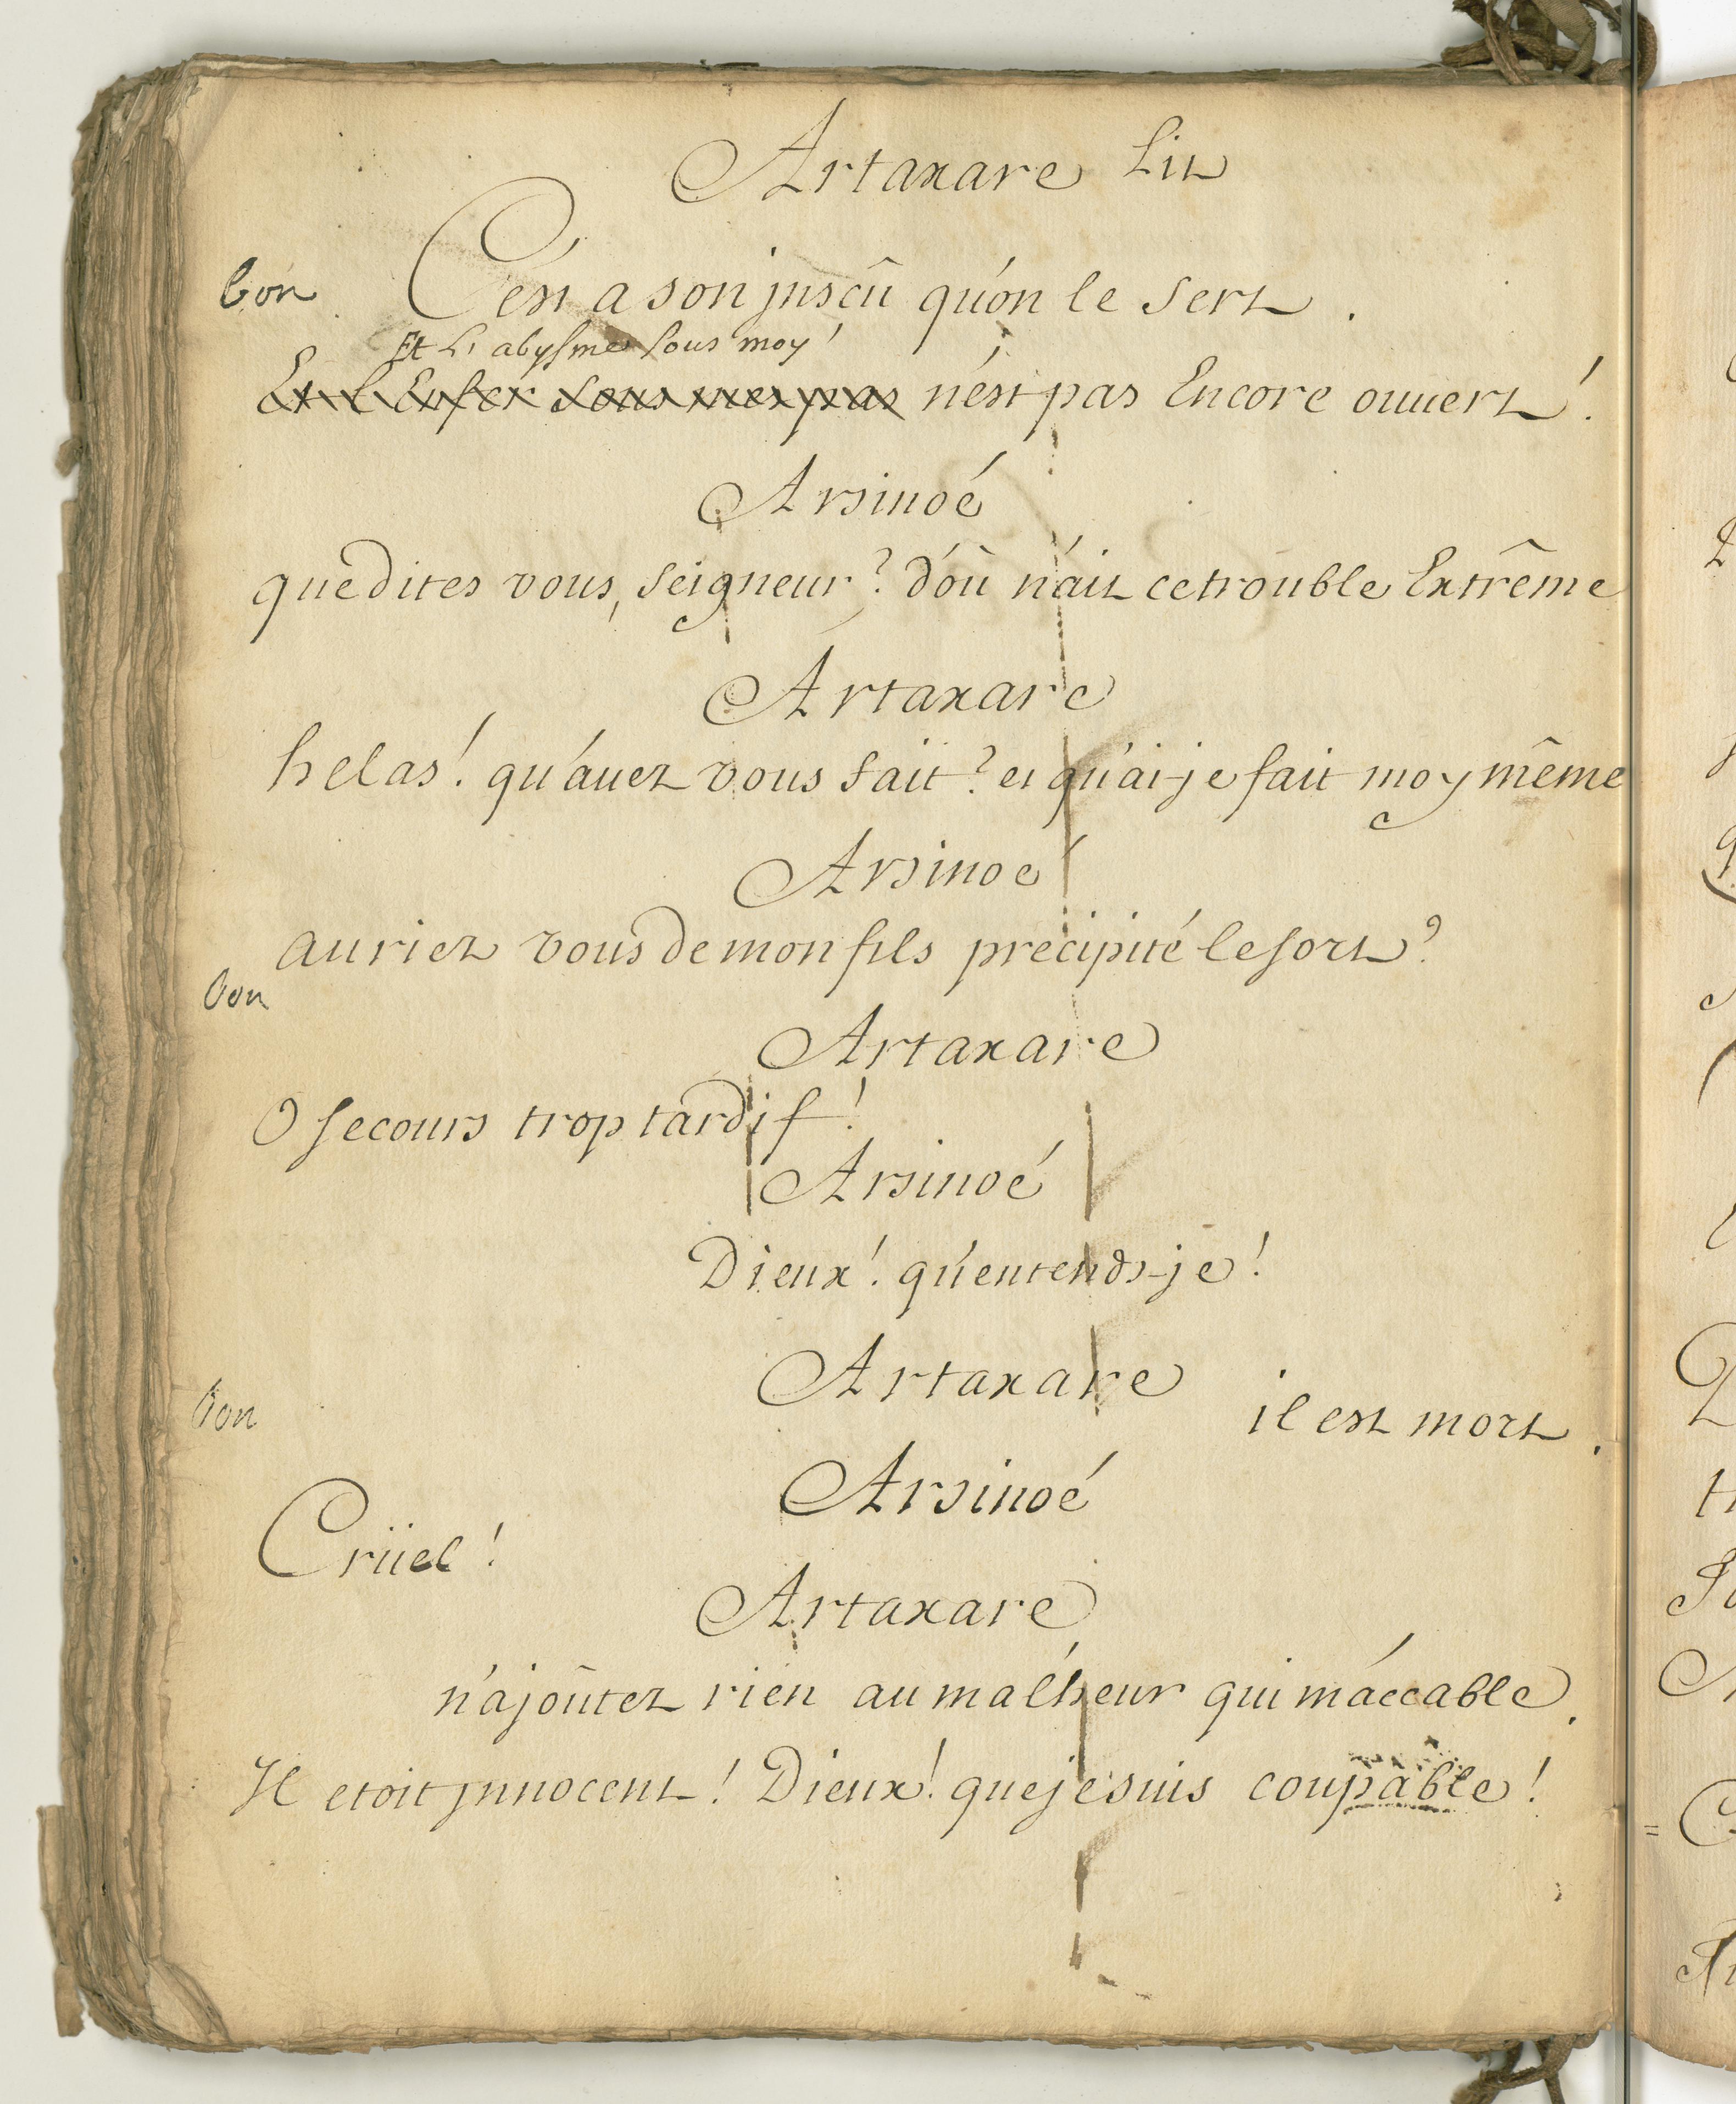 Artaxare Lit
bon C'est a son jnscû qu'on le sert.
Et L'abysme sous moy!
Et l'Enfer sous mes pas n'est pas Encore ouuert!
Arsinoé
que dites vous, seigneur? d'où n'ait ce trouble Extrême
Artaxare
helas! qu'auez vous fait? et qu'ai-je fait moy même
Arsinoé
auriez vous de mon fils precipité le sort?
bon
Artaxare
O secours trop tardif!
Arsinoé
Dieux! qu'entends-je!
Artaxare
bon il est mort.
Arsinoé
Crüel!
Artaxare
n'ajoûtez rien au malheur qui m'accable.
Il etoit jnnocent! Dieux! que je suis coupable!